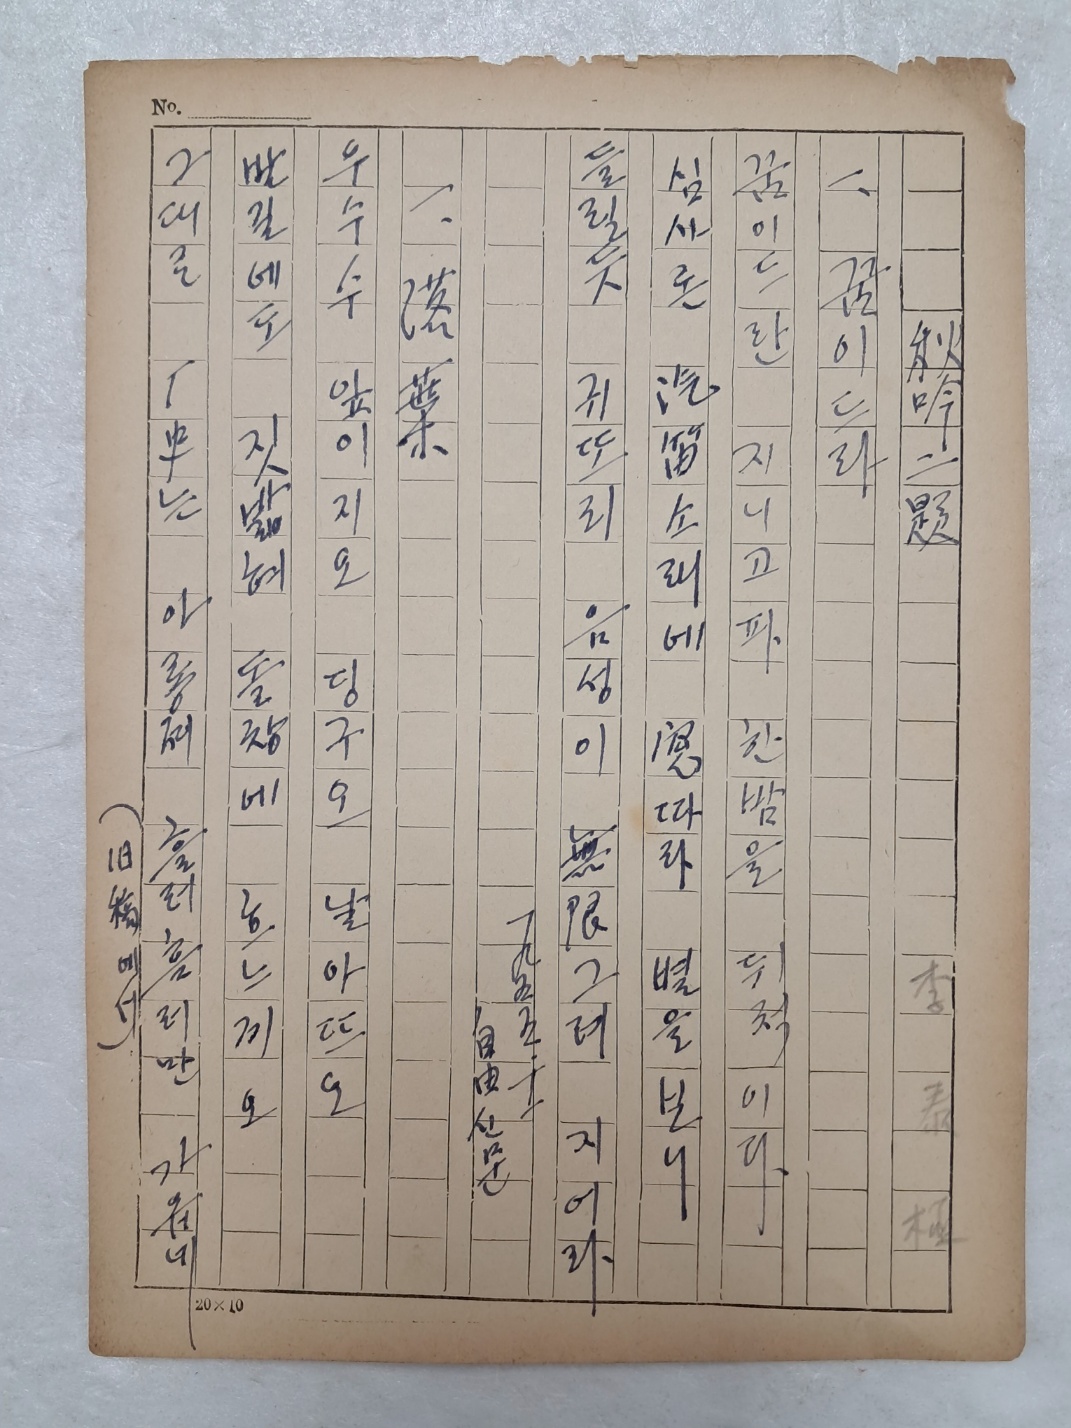 No.
秋吟二題
李泰極
一、 꿈이드라
꿈이드란 지니고파 한밤을 뒤척이다.
심사론 汽笛소래에 窓따라 별을보니
들릴듯 귀또리 음성이 無限그려 지어라.
一九五五 十一
自由신문
一、 落葉
우수수 앞이지오 딩구오 날아뜨오
발길에도 짓밟혀 돌창에 흐느끼오
그대로 아롱져 흘러흘러만 가옵네
(旧稿에서)
20×10